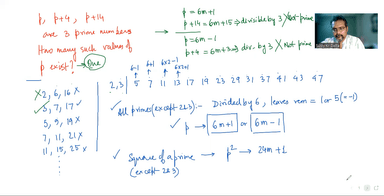 p, p+4, p+14
are 3 prime numbers
How many such values of
p exist? → One
p = 6m+1
p+14 = 6m+15 → divisible by 3 X Not prime
p = 6m-1
p+4 = 6m+3 → div. by 3 X Not prime
X 2, 6, 16 X
✓ 3, 7, 17 ✓
5, 9, 19 X
7, 11, 21 X
11, 15, 25 X
6-1 6+1 6×2-1 6×2+1
2, 3 5 7 11 13 17 19 23 29 31 37 41 43 47
✓ All primes (except 2&3) :- Divided by 6, leaves rem = 1 or 5 (or -1)
✓ p → 6m+1 or 6m-1
✓ Square of a prime → p² → 24m+1
(except 2&3)